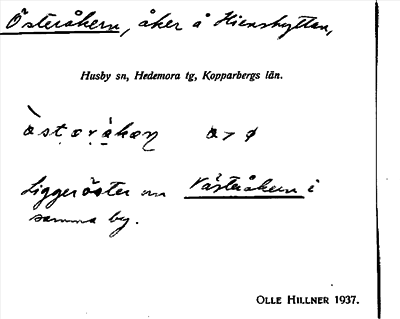 Österåkern, åker å Hienshyttan,
Husby sn, Hedemora tg, Kopparbergs län.
Ligger öster om Västeråkern i
samma by.
OLLE HILLNER 1937.